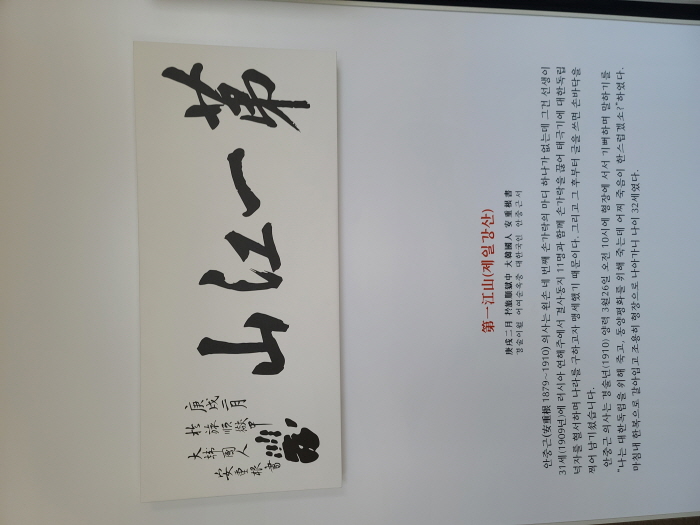 第一江山
庚戌二月
於旅順獄中
大韓國人
安重根書
第一江山(제일강산)
庚戌二月 於旅順獄中 大韓國人 安重根 書
경술이월 어여순옥중 대한국인 안중근 서
안중근(安重根 1879~1910) 의사는 왼손 네 번째 손가락의 마디 하나가 없는데 그건 선생이
31세(1909년)에 러시아 연해주에서 결사동지 11명과 함께 손가락을 끊어 태극기에 대한독립
넉자를 혈서하며 나라를 구하고자 맹세했기 때문이다. 그리고 그 후부터 글을 쓰면 손바닥을
찍어 남기셨습니다.
안중근 의사는 경술년(1910) 양력 3월26일 오전 10시에 형장에 서서 기뻐하며 말하기를
"나는 대한독립을 위해 죽고, 동양평화를 위해 죽는데 어찌 죽음이 한스럽겠소?"하였다.
마침내 한복으로 갈아입고 조용히 형장으로 나아가니 나이 32세였다.